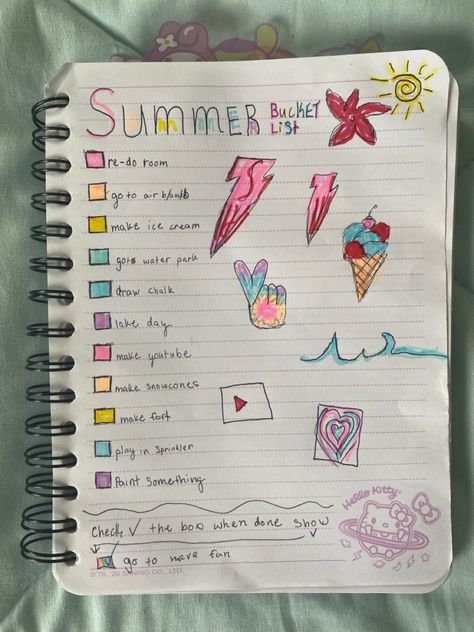 SUMMER BUCKET LIST
re-do room
go to air b/anb
make ice cream
goto water park
draw chalk
lake day
make youtube
make snowcones
make fort
play in sprinkler
Paint Something
Check ✓ the box when done show
go to have fun
Hello Kitty
©'76, '20 SANRIO CO., LTD.